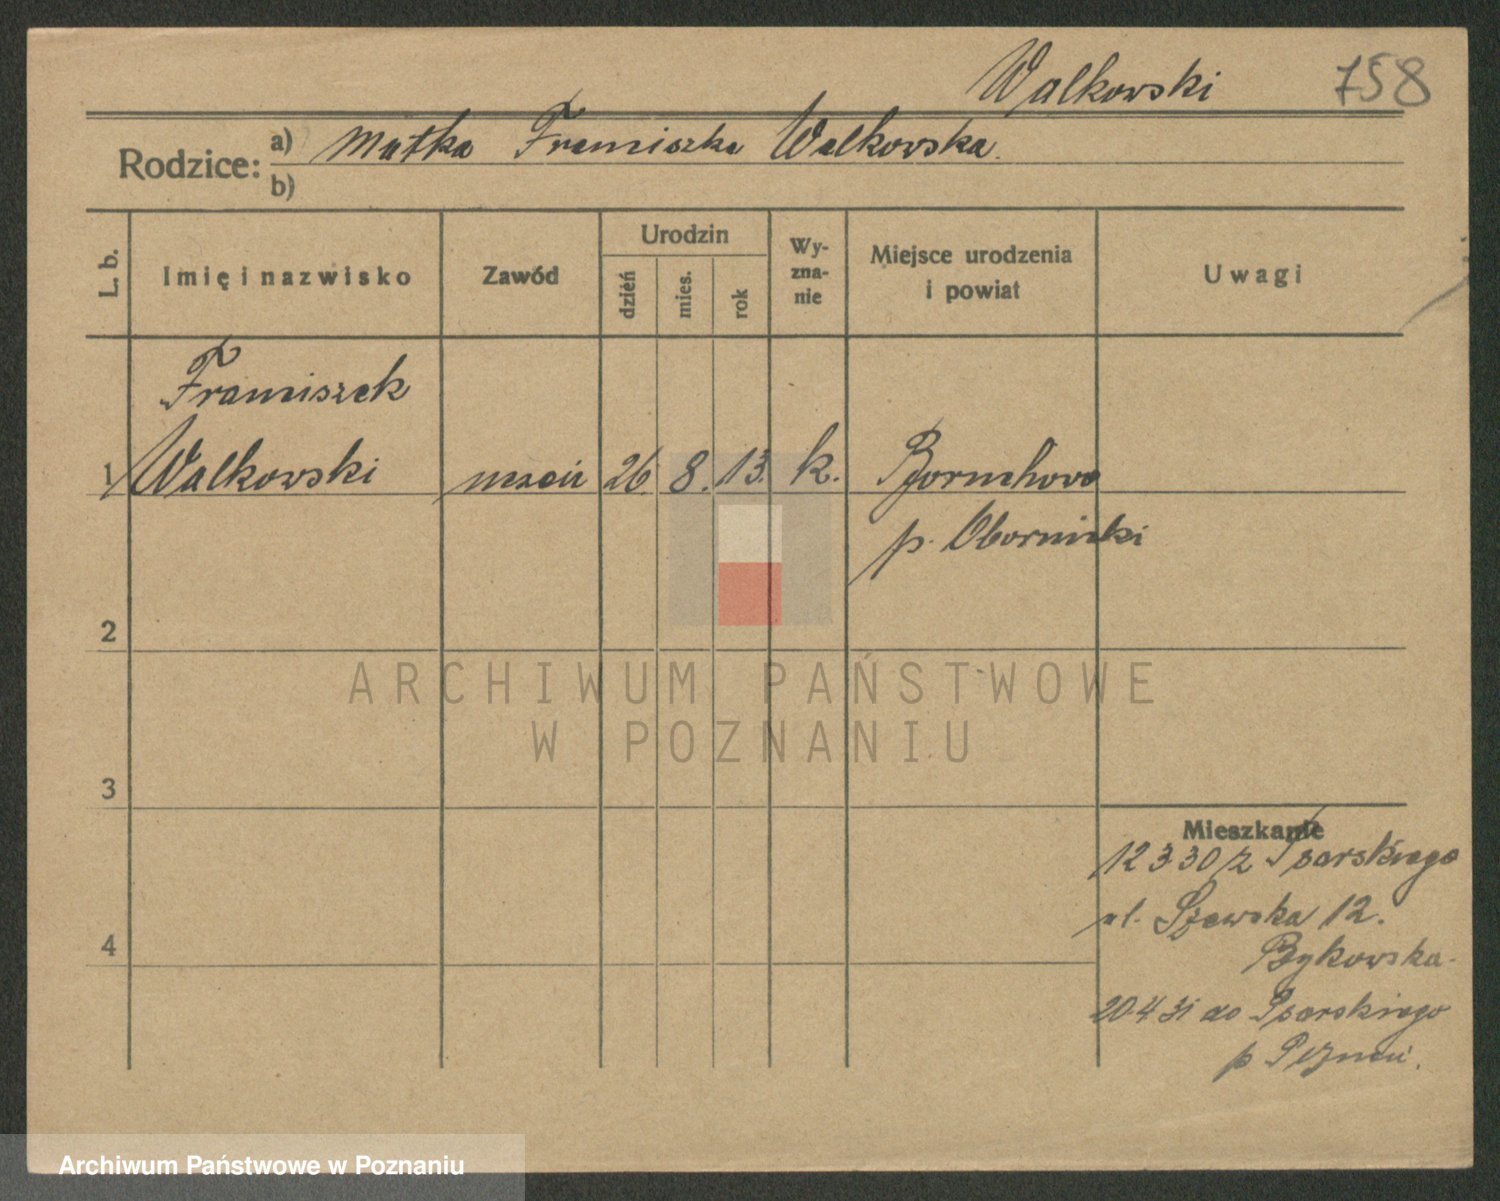 Walkowski 758
Rodzice: a) matka Franciszka Walkowska.
b)
L. b. Imię i nazwisko Zawód Urodzin dzień mies. rok Wy-zna-nie Miejsce urodzenia i powiat Uwagi
Franciszek
1 Walkowski uczeń 26. 8. 13. k.
p. Oborniki
2
ARCHIWUM PAŃSTWOWE
W POZNANIU
3
Mieszkanie
12 3 30 z Psarskiego
ul. Szewska 12.
Bykowska
4
20 4 31 do Psarskiego
p
Archiwum Państwowe w Poznaniu